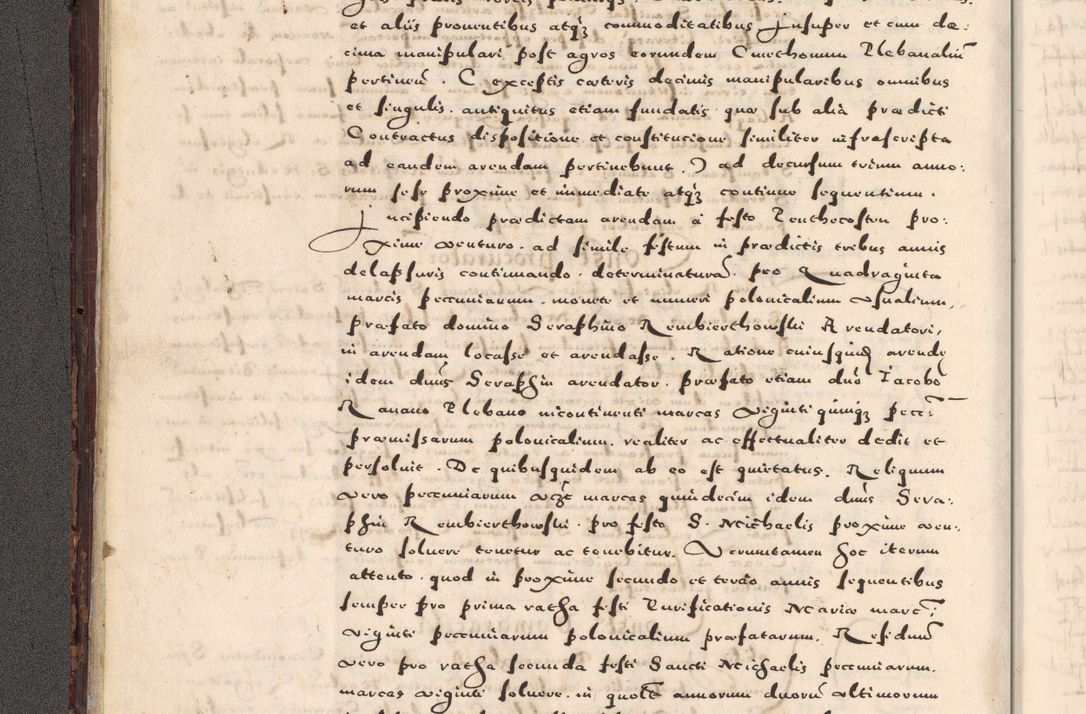 et aliis prouentibus atqʒ commoditatibus Insuper et cum de:
cima manipulari post agros eorundem Cmethonum Plebanaliu͂
pertinen͂. ( exceptis cæteris decimis manipularibus omnibus
et singulis. antiquitus etiam fundatis quæ sub alia prædicti
Contractus dispositione et constitucione similiter infrascripta
ad eandem arendam pertinebunt. ) ad decursum trium anno:
rum sese proxime et immediate atqʒ continue sequentium.
Incipiendo prædictam arendam à festo Penthecosten pro:
xime venturo. ad simile festum in prædictis tribus annis
delapsuris continuando. determinatura͂. pro Quadraginta
marcis pecuniarum. monete et numeri polonicalium vsualium,
præfato domino Seraphino Rembierthowski Arendatori,
in arendam locasse et arendasse. Ratione cuiusquid arende
idem dn͂s Seraphin arendator. præfato etiam dn͂o Jacobo
Ranano Plebano incontinenti marcas viginti quinqʒ pecc͂:
præmissarum polonicalium. realiter ac effectualiter dedit et
persoluit. De quibusquidem ab eo est quietatus. Reliquum
vero pecuniarum vʒt marcas quindecim idem dn͂s Sera:
phin Rembierthowski. pro festo S. Michaelis proxime ven:
turo soluere tenetur ac tenebitur. Veruntamen hoc iterum
attento. quod in proxime secundo et tercio annis sequentibus
semper pro prima ratha festi Purificationis Mariæ marc͂:
viginti pecuniarum polonicalium præfatarum. Residuu͂
vero pro ratha secunda festi Sancti Michaelis pecuniarum.
marcas viginti soluere. in quolt͂ annorum duoru͂ vltimorum